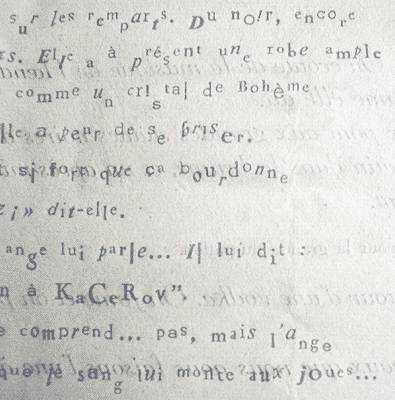 sur les remparts. Du noir, encore
rs. Elle a à présent une robe ample
comme un cristal de Bohème
lle a peur de se briser.
si fort que ça bourdonne
» dit-elle.
ange lui parle... Il lui dit :
n à KaCeRov”.
e comprend... pas, mais l'ange
que le sang lui monte aux joues...